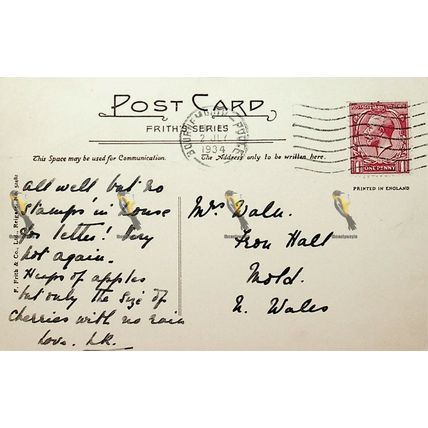 POST CARD
FRITH'S SERIES
BOURNEMOUTH - POOLE
2 JLY
1934
ONE PENNY
This Space may be used for Communication.
The Address only to be written here.
PRINTED IN ENGLAND
F. Frith & Co., Ltd., Reigate.
all well but no
stamps in house
for letter! Very
hot again.
Heaps of apples
but only the size of
cherries with no rain
Love.
Mrs
Hall
Mold.
N. Wales